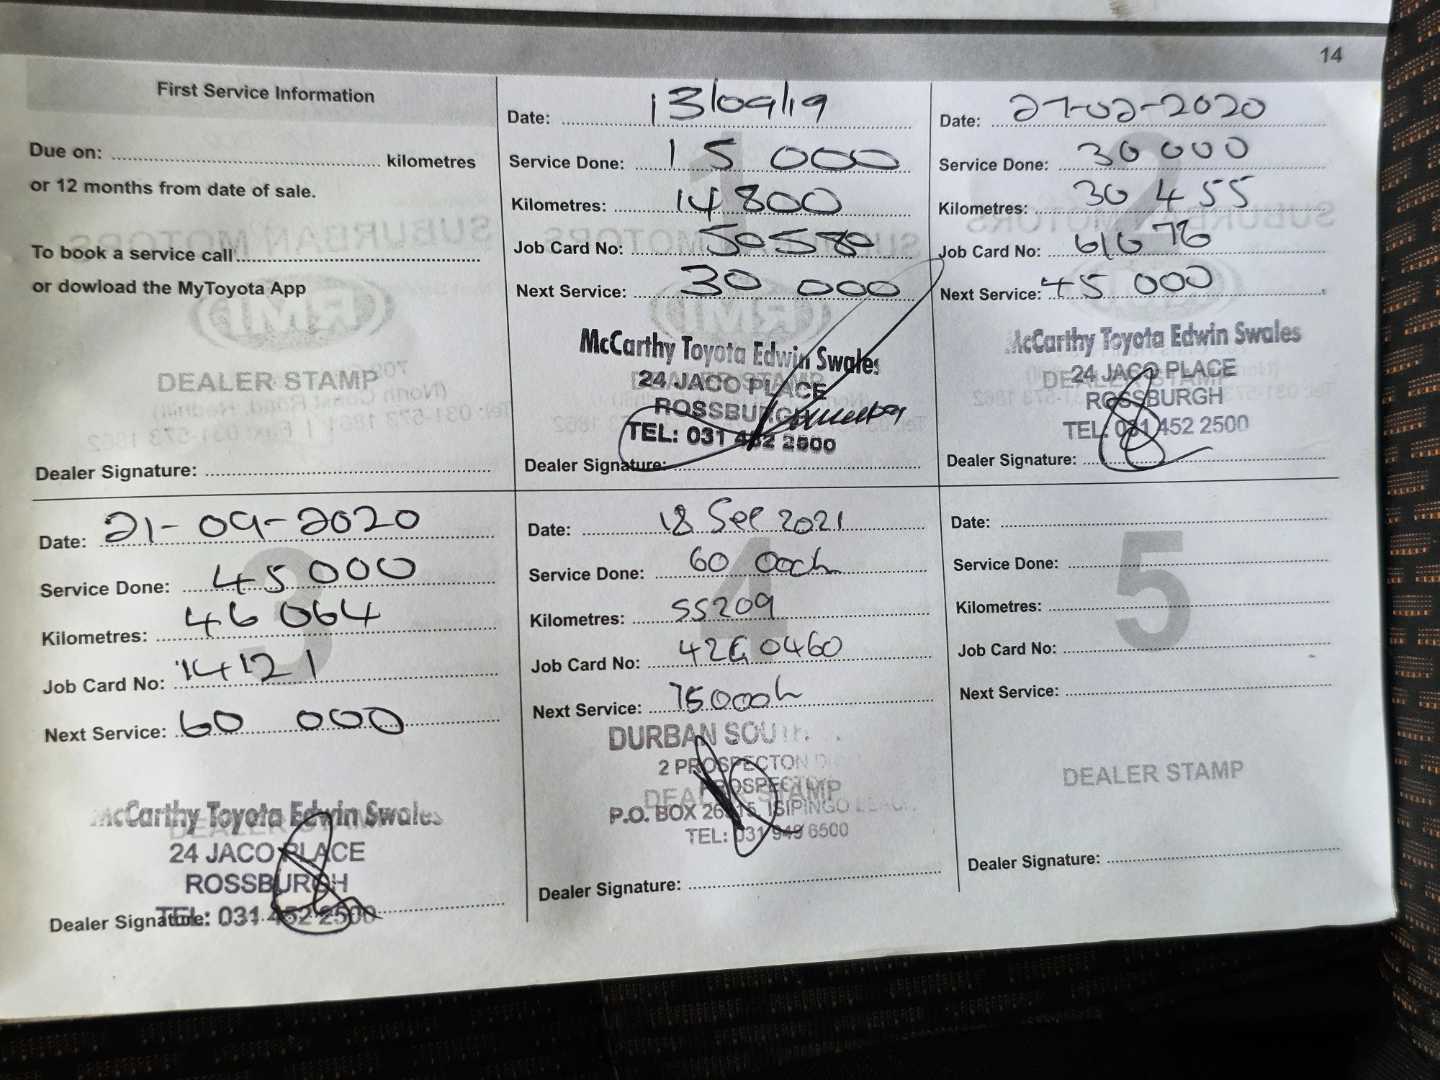 14
First Service Information
Due on: .................... kilometres
or 12 months from date of sale.
To book a service call ....................
or dowload the MyToyota App
DEALER STAMP
Dealer Signature: ....................
1
Date: 13/09/19
Service Done: 15 000
Kilometres: 14 800
Job Card No: 50580
Next Service: 30 000
McCarthy Toyota Edwin Swales
24 JACO PLACE
ROSSBURGH
TEL: 031 452 2500
Dealer Signature:
2
Date: 27-02-2020
Service Done: 30 000
Kilometres: 30 455
Job Card No: 61678
Next Service: 45 000
McCarthy Toyota Edwin Swales
24 JACO PLACE
ROSSBURGH
TEL: 031 452 2500
Dealer Signature:
3
Date: 21-09-2020
Service Done: 45 000
Kilometres: 46 064
Job Card No: 14121
Next Service: 60 000
McCarthy Toyota Edwin Swales
24 JACO PLACE
ROSSBURGH
TEL: 031 452 2500
Dealer Signature:
4
Date: 18 Sep 2021
Service Done: 60 000k
Kilometres: 55209
Job Card No:
Next Service: 75000k
DURBAN SOUTH
2 PROSPECTON
PROSPECTON
DEALER STAMP
P.O. BOX ISIPINGO BEACH
TEL: 031 949 6500
Dealer Signature: ....................
5
Date: ....................
Service Done: ....................
Kilometres: ....................
Job Card No: ....................
Next Service: ....................
DEALER STAMP
Dealer Signature: ....................